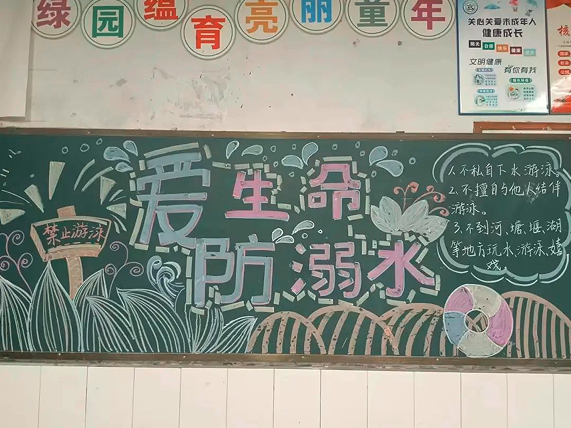 绿园蕴育亮丽童年
关心关爱未成年人
健康成长
文明健康 有你有我
爱生命
防溺水
禁止游泳
1.不私自下水游泳。
2.不擅自与他人结伴
游泳。
3.不到河、塘、堰、湖
等地方玩水、游泳、嬉
戏。